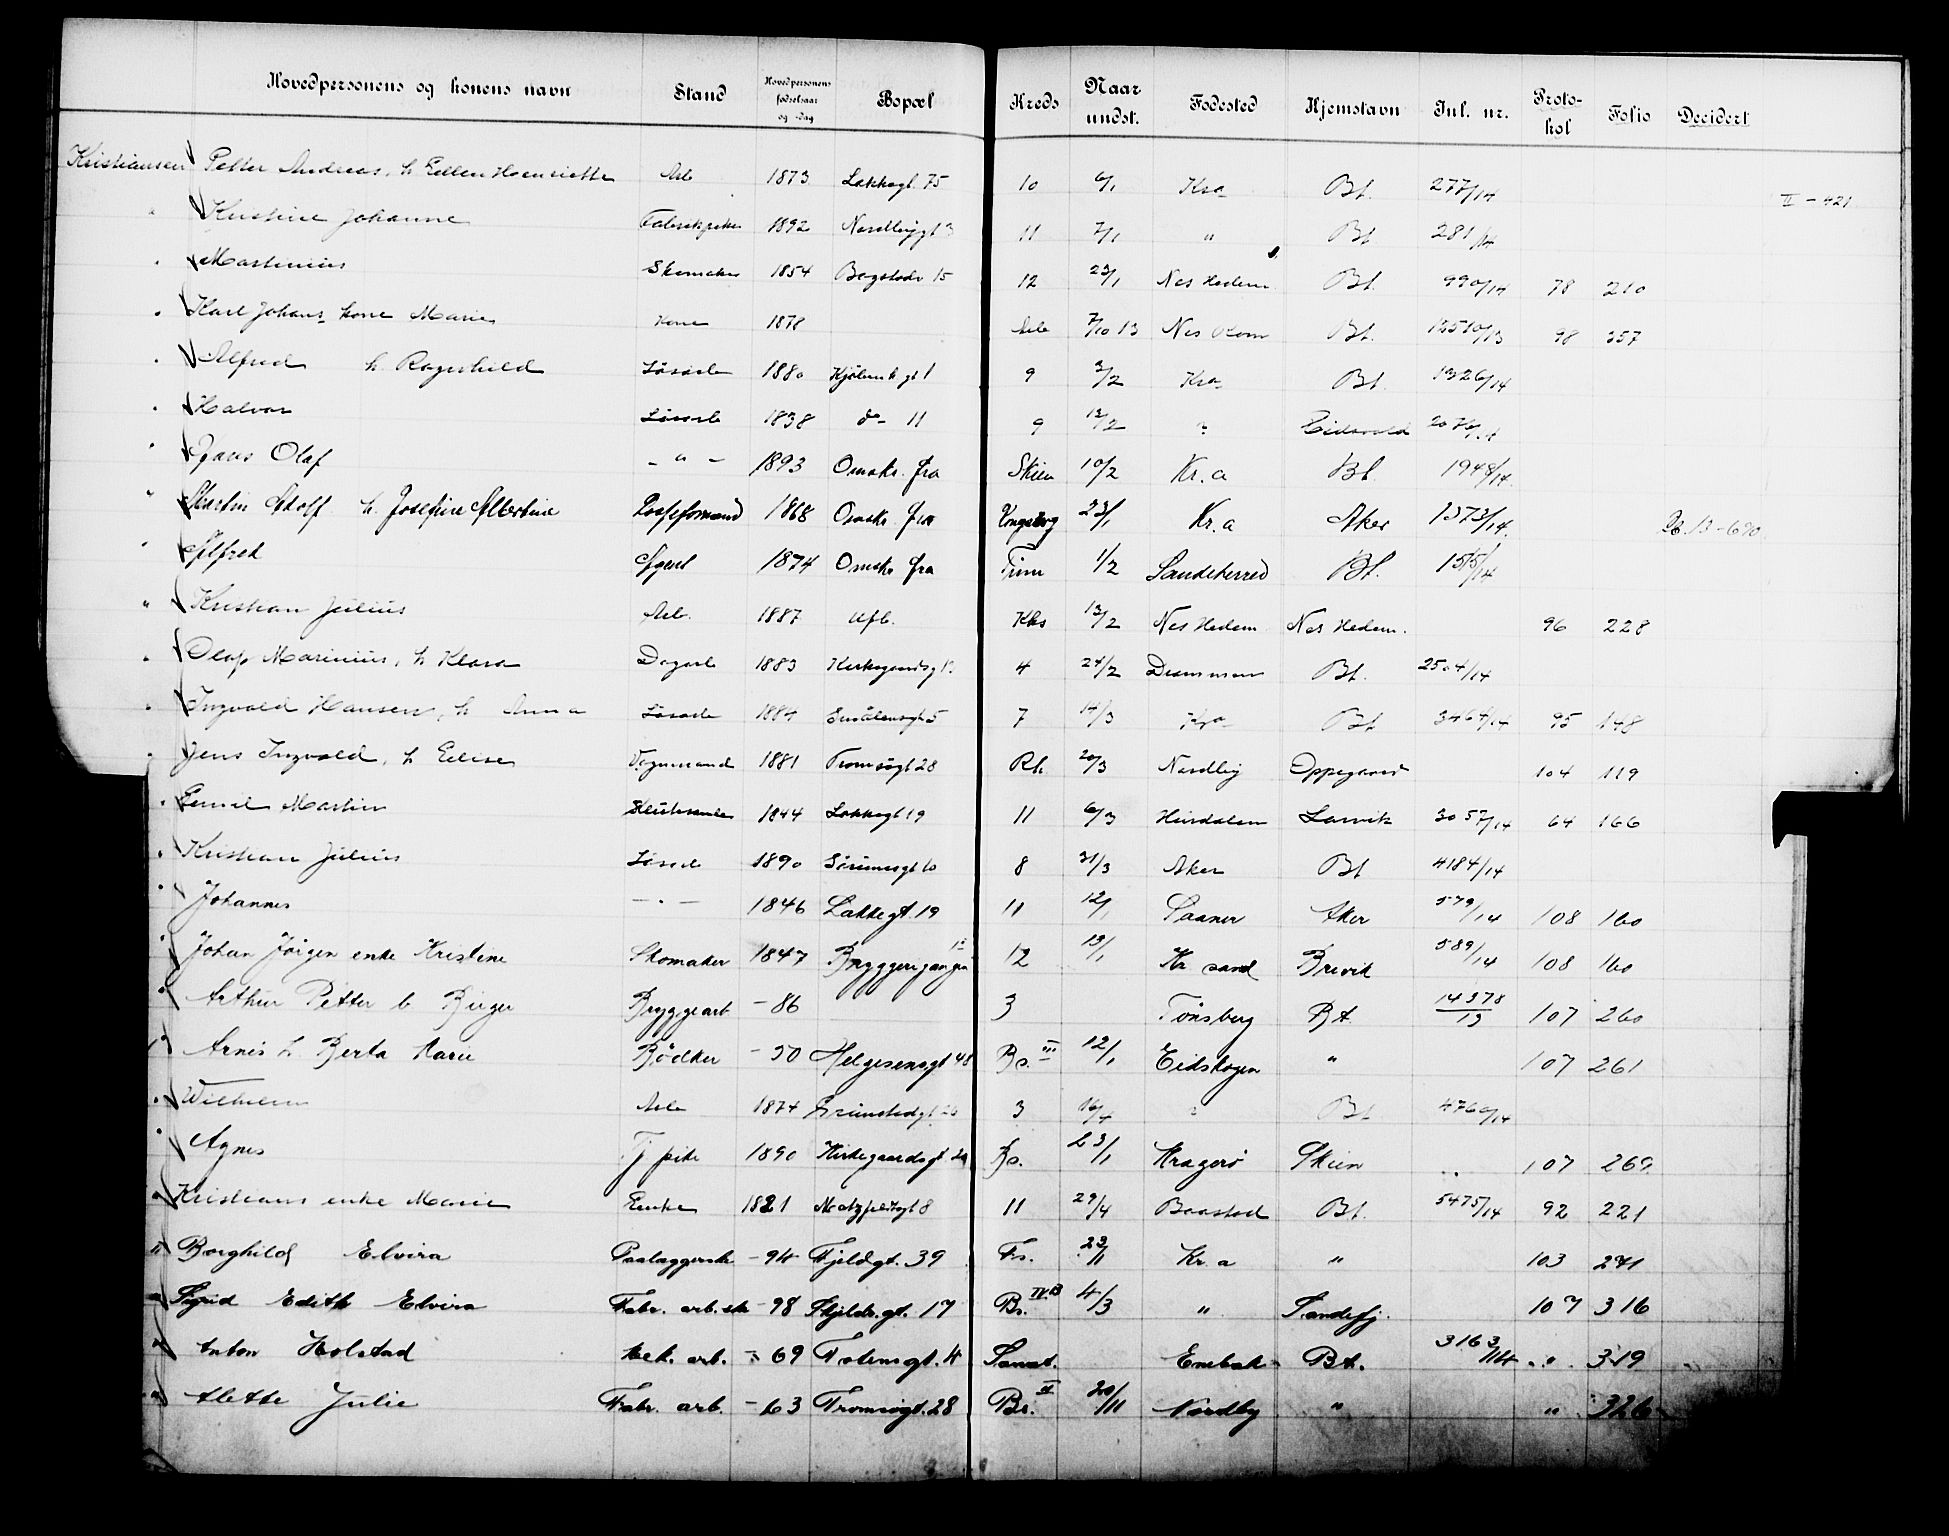 Hovedpersonens og konens navn Stand Hovedpersonens fødselsaar og -dag Bopæl Kreds Naar undst. Fødested Hjemstavn Jnl. nr. Proto-kol Folio Decidert
Kristiansen Petter Andreas, h. Ellen Henriette Arb 1873 Lakkegt. 75 10 6/1 Kra Bt. 277/14 II - 421
" Kristine Johanne Fabrikpike 1892 Nordbygt 3 11 7/1 " Bt 281/14
" Martinius Skomaker 1854 Bogstadv 15 12 23/1 Nes Hedem. Bt. 990/14 78 210
" Karl Johans kone Marie Kone 1878 7/10 13 Nes Bt. 13510/13 98 357
" Alfred h. Ragnhild Løsarb 1880 Kjøbenh.gt 1 9 3/2 Kra Bt. 1326/14
" Halvor Løsarb 1838 do 11 9 12/2 " Eidsvold 2076/14
" Hans Olaf - " - 1893 Omsk. fra Skien 10/2 Kr.a Bt. 1948/14
" Martin Adolf h. Josefine Albertine 1868 Omsk. fra Kongsberg 23/1 Kr.a Aker 1373/14 B. 13 - 690
" Alfred Agent 1874 Omsk. fra Trom 1/2 Sandeherred Bt. 1515/14
" Kristian Julius Arb. 1887 Ufb. Kbs 13/2 Nes Hedem. Nes Hedem. 96 228
" Olaf Marinius, h. Klara Dagarb 1883 Kirkegaardsgt 13 4 24/2 Drammen Bt. 2504/14
" Ingvald Hansen, h. Anna Løsarb 1884 Smålensgt 5 7 14/3 Kra Bt 3464/14 95 148
" Jens Ingvald, h. Elise Vognmand 1881 Tromsøgt 28 Rh. 20/3 Nordby Oppegaard 104 119
" Emil Martin 1844 Lakkegt 19 11 6/3 Heirdalen Larvik 3057/14 64 166
" Kristian Julius Løsarb 1890 Sørumsgt 10 8 31/3 Aker Bt 4184/14
" Johannes - " - 1846 Lakkegt. 19 11 12/1 Saaner Aker 579/14 108 160
" Johan Jörgen enke Kristine Skomaker 1847 Bryggerigangen 12 12 13/1 Kr sand Brevik 589/14 108 160
" Arthur Petter b. Birger Bryggearb - 86 3 Tönsberg Bt. 14378/13 107 260
" Arnes h. Berta Marie Bödker - 50 Helgesensgt 48 Bs. III 12/1 Eidskogen " 107 261
" Wilhelm Arb 1874 Grimstadgt. 26 3 16/4 " Bt 4760/14
" Agnes Tj pike 1890 Kirkegaardsgt. 20 Bs. 23/1 Kragerö Skien 107 269
" Kristians enke Marie Enke 1821 Motzfeldtsgt 8 11 29/4 Baastad Bt. 5475/14 92 221
" Borghild Elvira Paalæggerske - 94 Fjeldgt. 39 Fs. 23/11 Kr.a " 103 241
" Sigrid Edith Elvira Fabr. arb.ske - 98 Skjoldsgt. 17 Bs. IV B 4/3 " Sandefj. 107 316
" Anton Holstad Mek. arb. - 69 Totensgt. 4 Sanat. Enebak Bt. 3163/14 " 319
" Alette Julie Fabr. arb. - 63 Tromsøgt. 28 Bs. II 20/11 Nordby " " 326